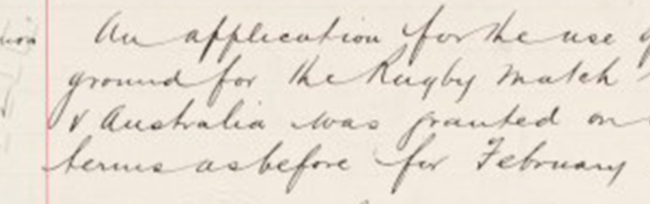 An application for the use
ground for the Rugby match
v Australia was granted on
terms as before for February